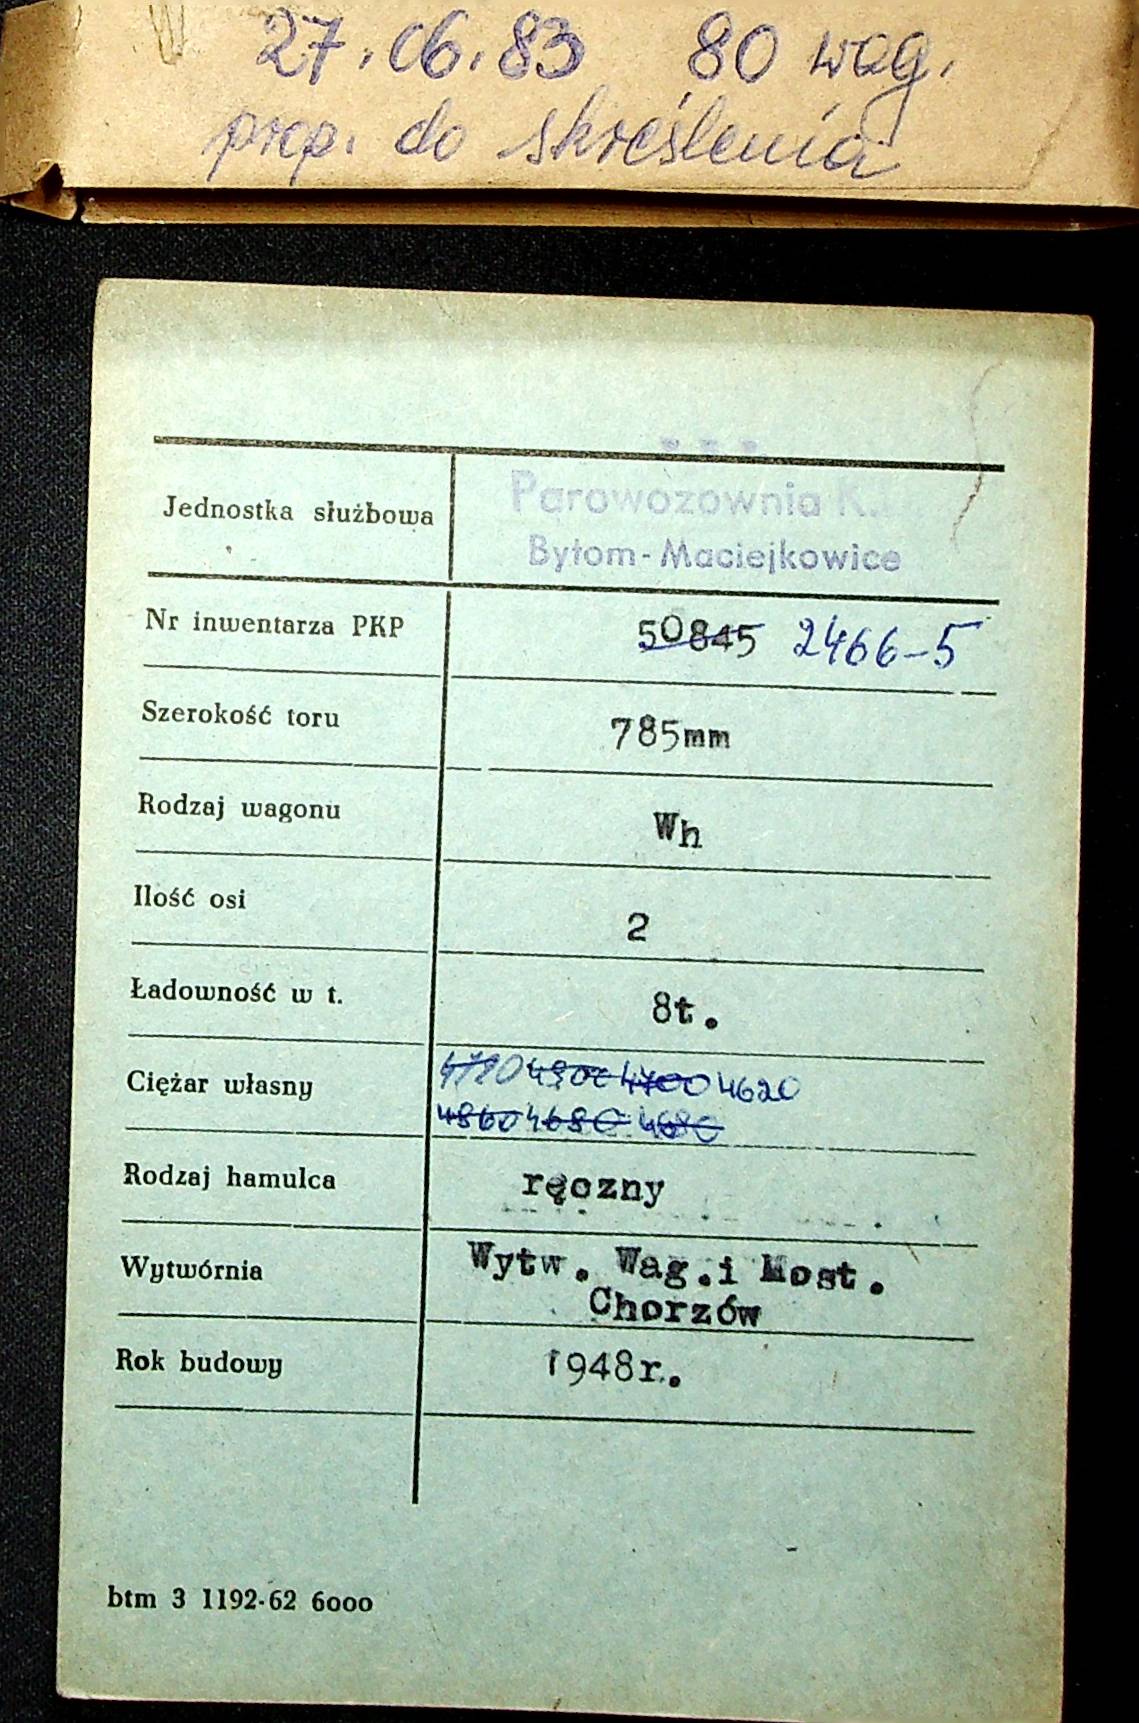 27.06.83 80 wag.
prop. do skreślenia
Jednostka służbowa
Parowozownia K.
Bytom-Maciejkowice
Nr inwentarza PKP 50845 2466-5
Szerokość toru 785mm
Rodzaj wagonu Wh
Ilość osi 2
Ładowność w t. 8t.
4720 4900 4700 4620
Ciężar własny
4860 4680 4680
Rodzaj hamulca ręczny
Wytwórnia Wytw. Wag.i Most.
Chorzów
Rok budowy 1948r.
btm 3 1192-62 6000